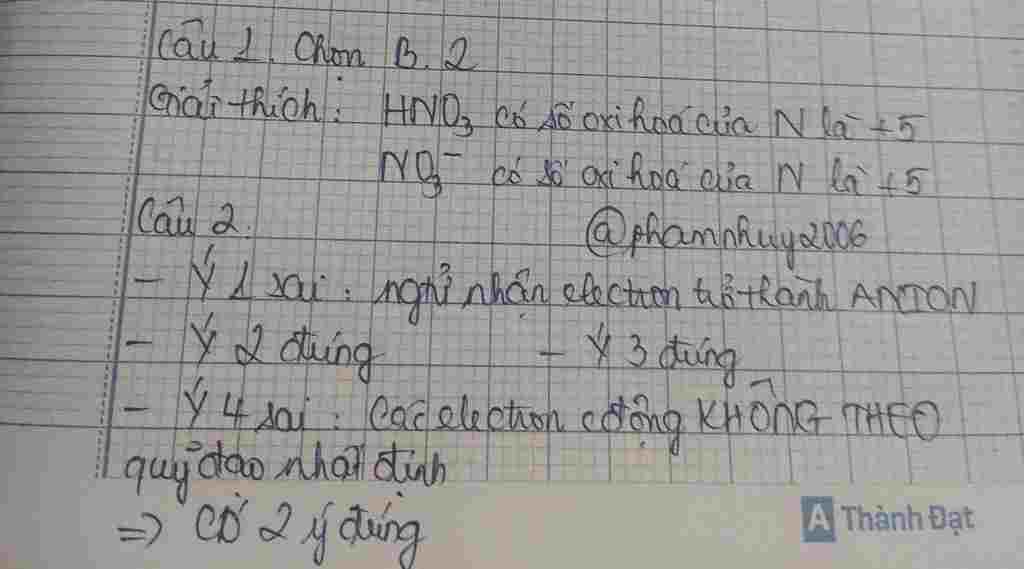 Câu 1. Chọn B. 2
Giải thích: HNO₃ có số oxi hoá của N là +5
NO₃⁻ có số oxi hoá của N là +5
Câu 2.
@phamnhuy2006
- Ý 1 sai: nghử nhận electron trở thành ANION
- Ý 2 đúng - Ý 3 đúng
- Ý 4 sai: Các electron cđộng KHÔNG THEO
quỹ đạo nhất định
=> CÓ 2 ý đúng
A Thành Đạt